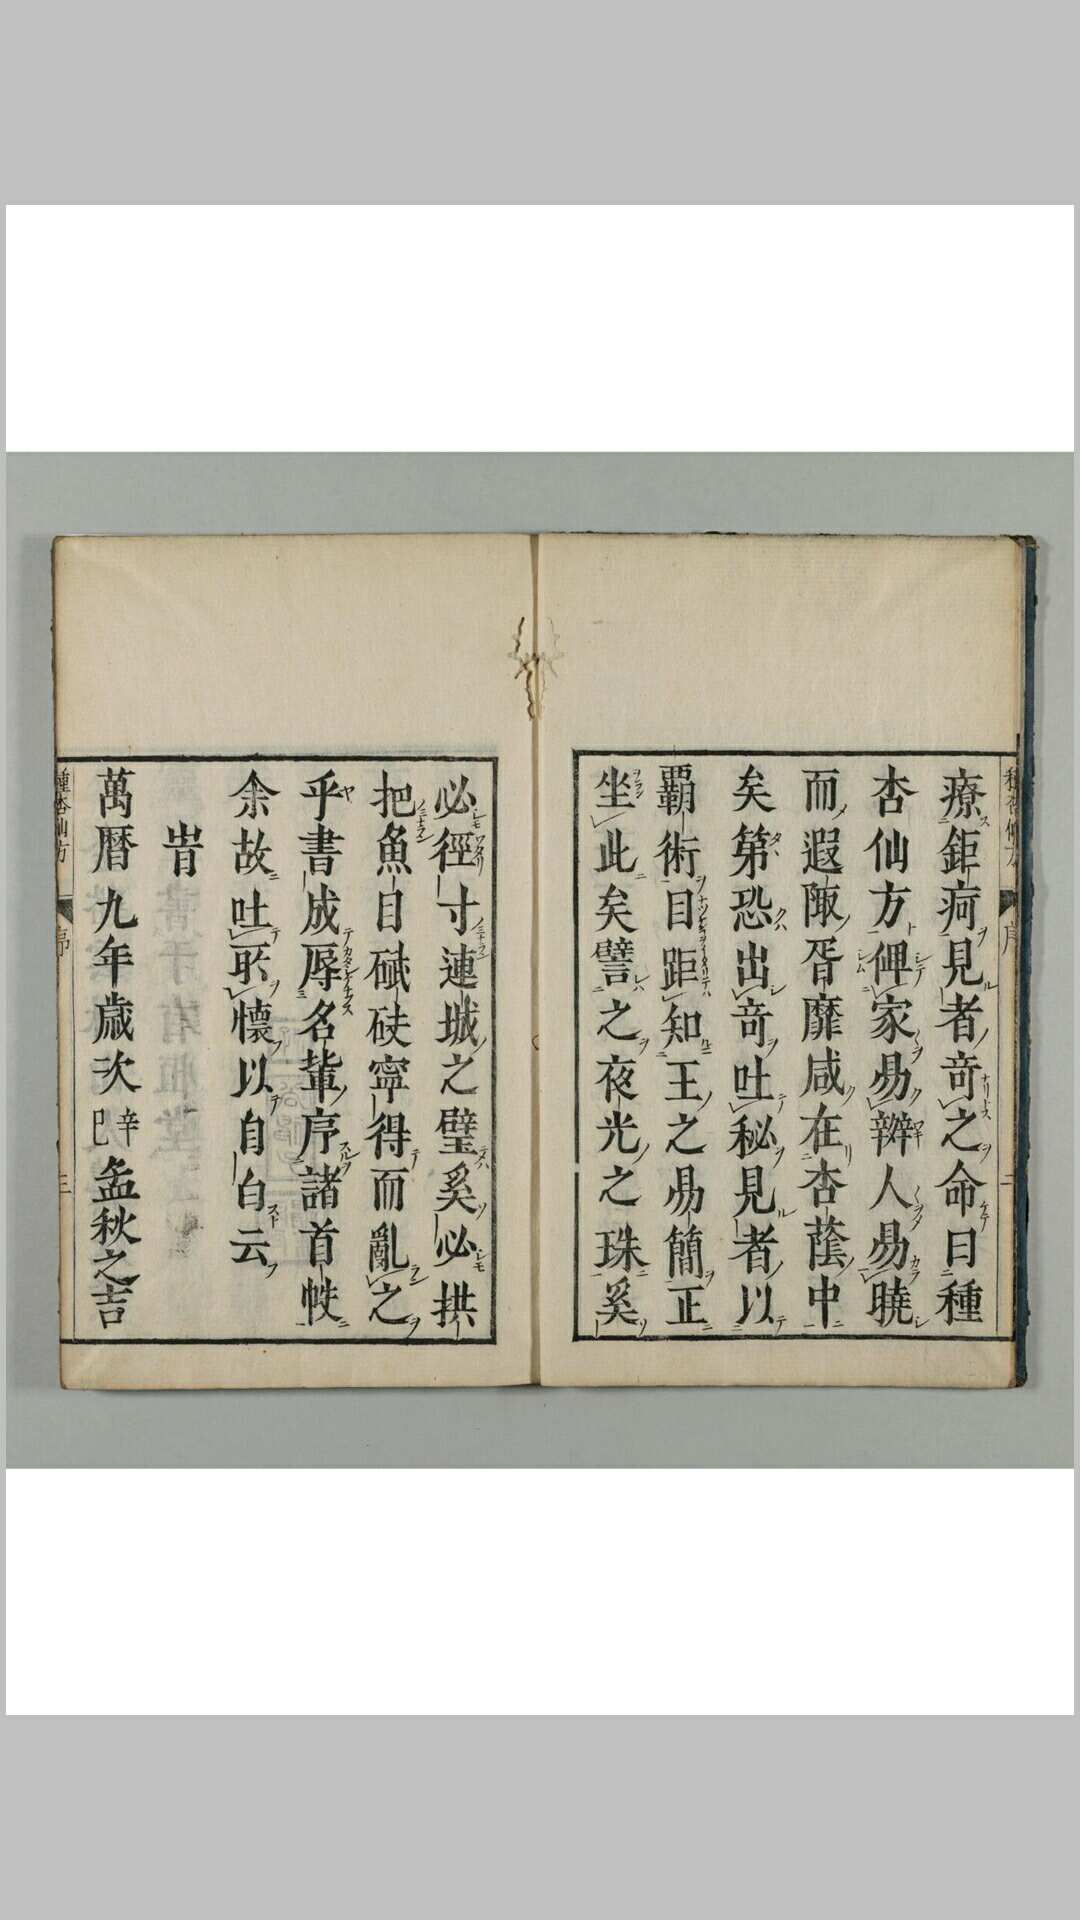 療鉅疴見者竒之命曰種
杏仙方俾家昜辧人昜曉
而遐陬胥靡咸在杏蔭中
矣第恐出竒吐秘見者以
覇術目距知王之昜簡正
坐此矣譬之夜光之珠奚
必徑寸連城之璧奚必拱
把魚目碔砆寧得而亂之
乎書成辱名軰序諸首帙
余故吐所懷以自白云
旹
萬暦九年歳次辛巳孟秋之吉
種杏仙方
序
三